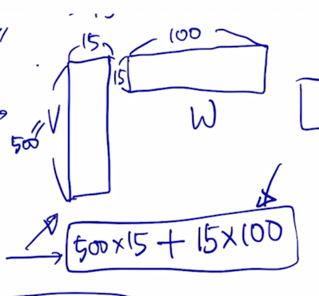 15 100
15
500 V
W
500×15 + 15×100